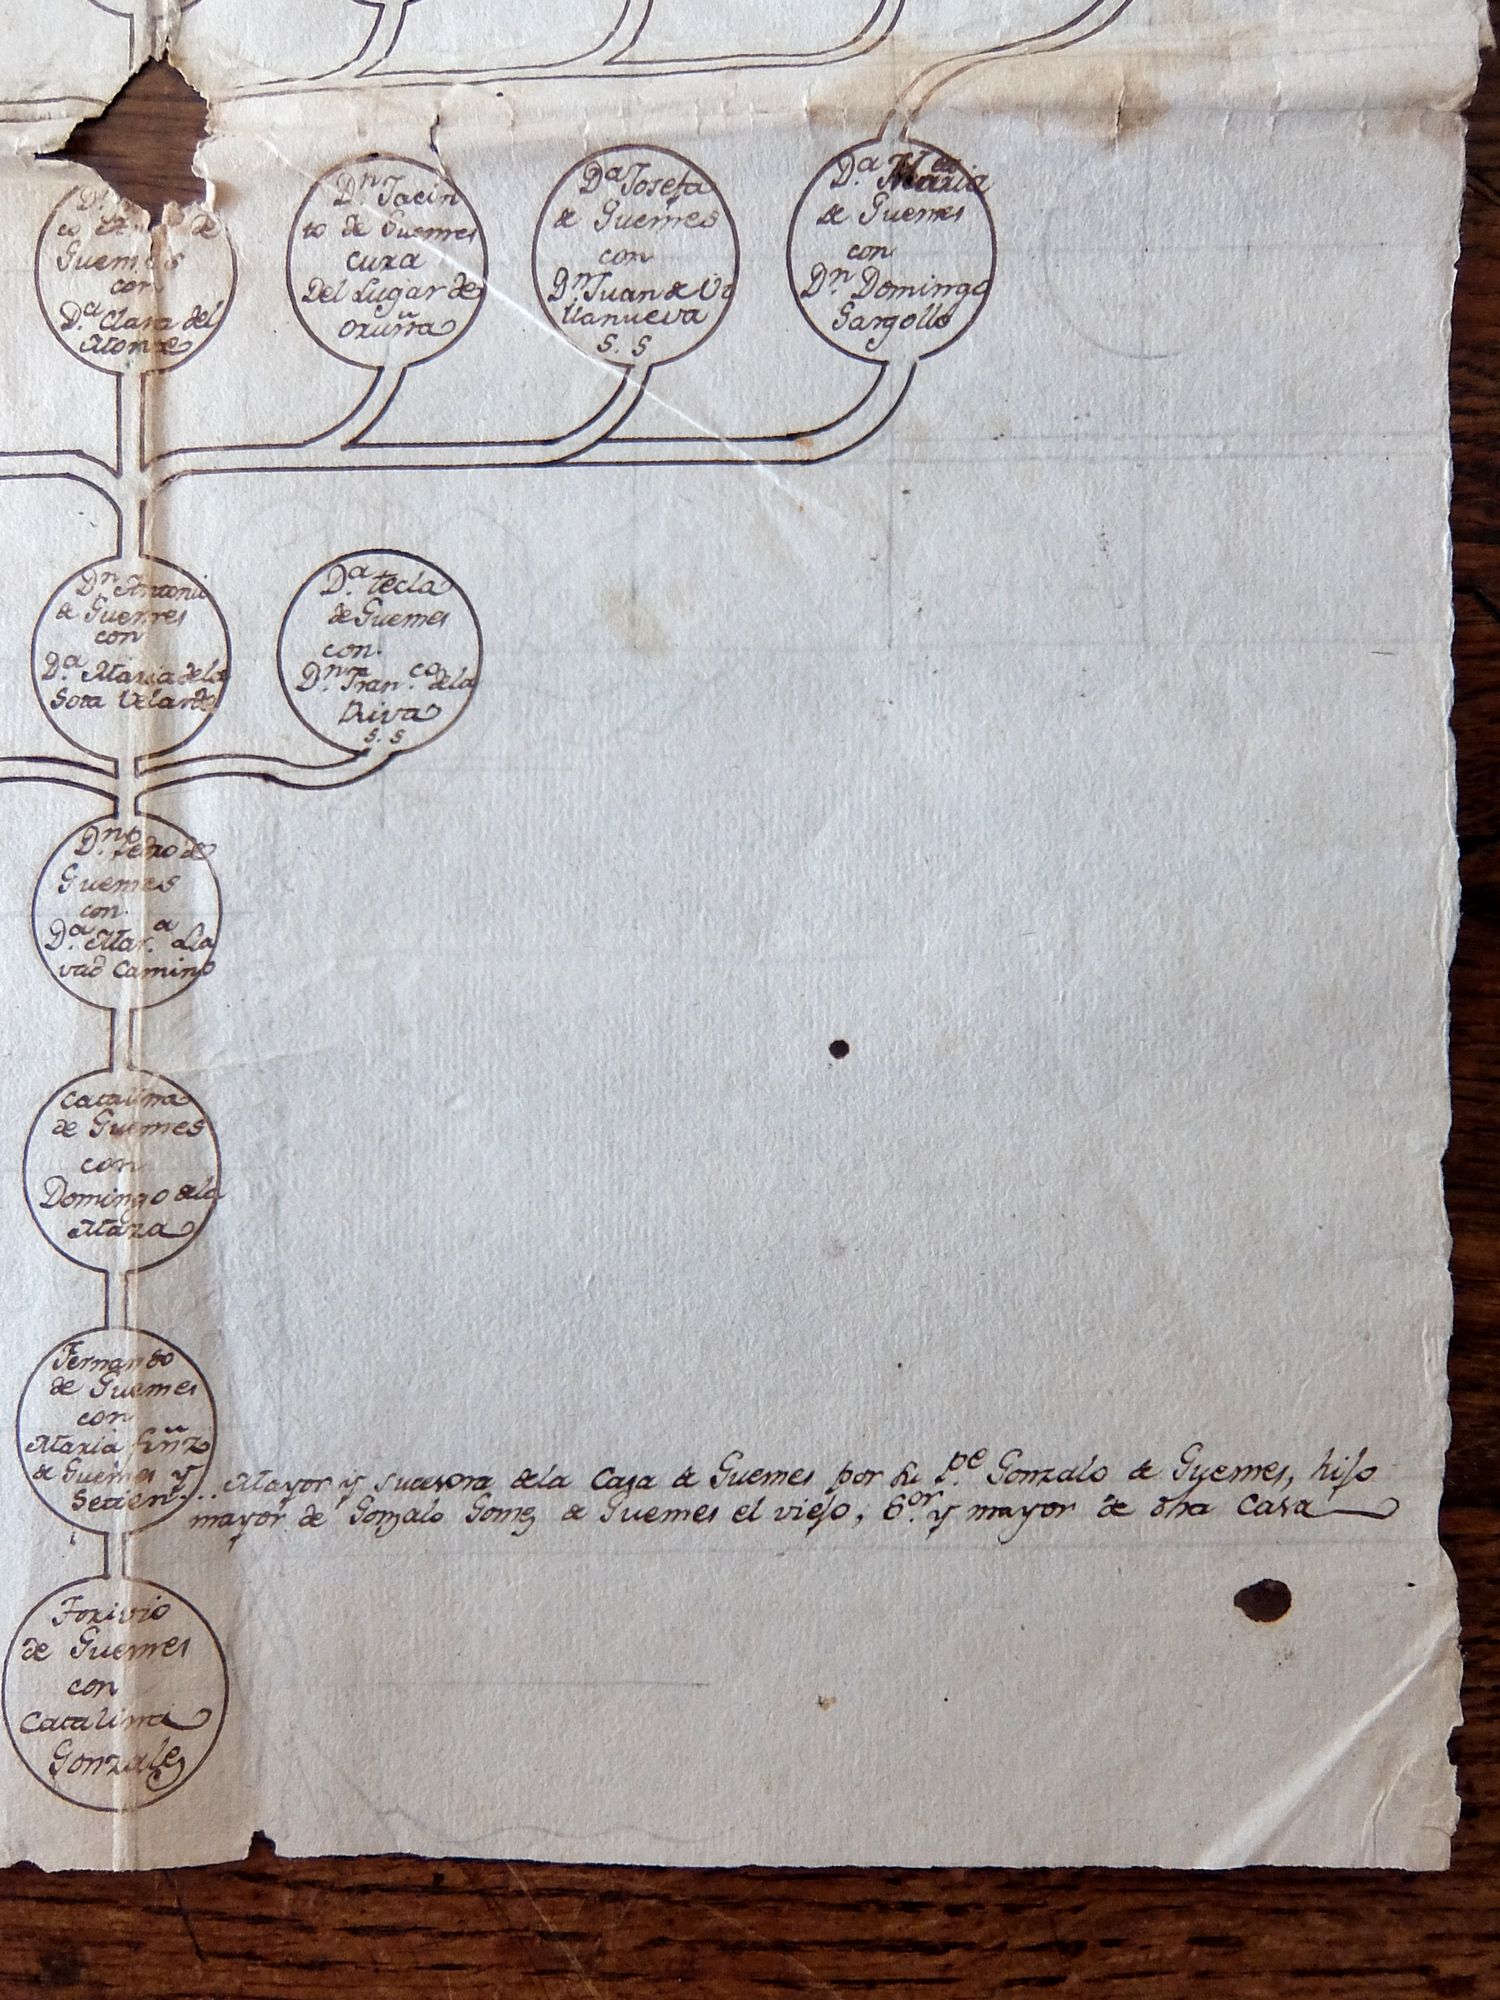 Guemes
con
D.ª Clara del
D.n Jacin
to de Guemes
cura
Del Lugar de
oruña
D.ª Josefa
de Guemes
con
D.n Juan de Vi
llanueva
S. S
D.ª Maria
de Guemes
con
D.n Domingo
Gargollo
D.n Antonio
de Guemes
con
D.ª Maria de la
Sota Velarde
D.ª tecla
de Guemes
con
D.n Fran.co de la
Riva
S. S
D.n Pedro de
Guemes
con
D.ª Mar.ª
Camino
Catalina
de Guemes
con
Domingo de la
Maza
Fernando
de Guemes
con
Maria
de Guemes y
Setien...
Mayor y sucesora de la Casa de Guemes por su P.e Gonzalo de Gyemes, hijo
mayor de Gonzalo Gomez de Guemes el viejo, y mayor de dha Casa
Torivio
de Guemes
con
Catalina
Gonzalez